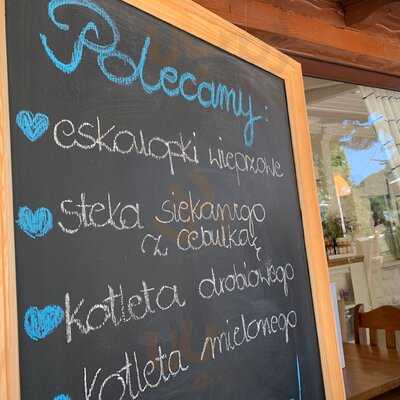 Polecamy:
eskalopki wieprzowe
steka siekanego
z cebulką
kotleta drobiowego
kotleta mielonego